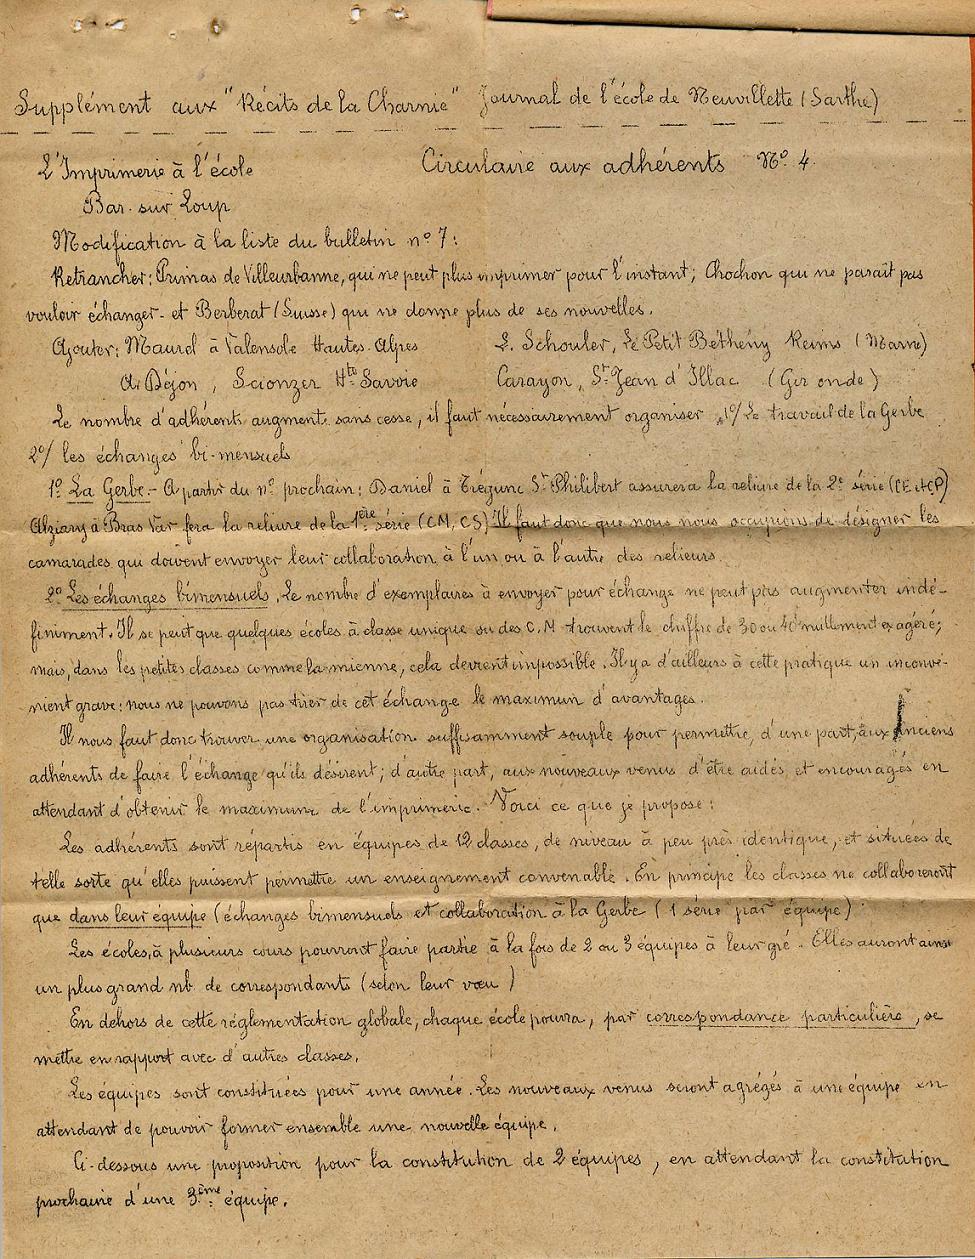 Supplément aux "Récits de la Charnie" Journal de l'école de Neuvillette (Sarthe)
L'Imprimerie à l'école Circulaire aux adhérents N° 4.
Bar-sur Loup
Modification à la liste du bulletin n° 7:
Retrancher: Primas de Villeurbanne, qui ne peut plus imprimer pour l'instant; Chochon qui ne paraît pas
vouloir échanger - et Berberat (Suisse) qui ne donne plus de ses nouvelles.
Ajouter: Maurel à Valensole Hautes-Alpes L. Schouler, Le Petit Bétheny Reims (Marne)
A. Déjon, Scionzer Hte Savoie Carayon, St Jean d'Illac (Gironde)
Le nombre d'adhérents augmente sans cesse, il faut nécessairement organiser 1°/ Le travail de la Gerbe
2°/ les échanges bi-mensuels
1° La Gerbe.- A partir du n° prochain: Daniel à Trégunc St Philibert assurera la reliure de la 2e série (CE et CP)
Alziary à Bras Var fera la reliure de la 1ère série (CM, CS) Il faut donc que nous nous occupions de désigner les
camarades qui doivent envoyer leur collaboration à l'un ou à l'autre des relieurs.
2° Les échanges bimensuels. Le nombre d'exemplaires à envoyer pour échange ne peut pas augmenter indé-
finiment. Il se peut que quelques écoles à classe unique ou des C.M trouvent le chiffre de 30 ou 40 nullement exagéré;
mais, dans les petites classes comme la mienne, cela devient impossible. Il y a d'ailleurs à cette pratique un inconvé-
nient grave: nous ne pouvons pas tirer de cet échange le maximum d'avantages.
Il nous faut donc trouver une organisation suffisamment souple pour permettre, d'une part, aux anciens
adhérents de faire l'échange qu'ils désirent; d'autre part, aux nouveaux venus d'être aidés et encouragés en
attendant d'obtenir le maximum de l'imprimerie. Voici ce que je propose:
Les adhérents sont répartis en équipes de 12 classes, de niveau à peu près identique, et situées de
telle sorte qu'elles puissent permettre un enseignement convenable. En principe les classes ne collaboreront
que dans leur équipe (échanges bimensuels et collaboration à la Gerbe (1 série par équipe)
Les écoles, à plusieurs cours pourront faire partie à la fois de 2 ou 3 équipes à leur gré. Elles auront ainsi
un plus grand nb. de correspondants (selon leur vœu)
En dehors de cette réglementation globale, chaque école pourra, par correspondance particulière, se
mettre en rapport avec d'autres classes.
Les équipes sont constituées pour une année. Les nouveaux venus seront agrégés à une équipe en
attendant de pouvoir former ensemble une nouvelle équipe.
Ci-dessous une proposition pour la constitution de 2 équipes, en attendant la constitution
prochaine d'une 3ème équipe.